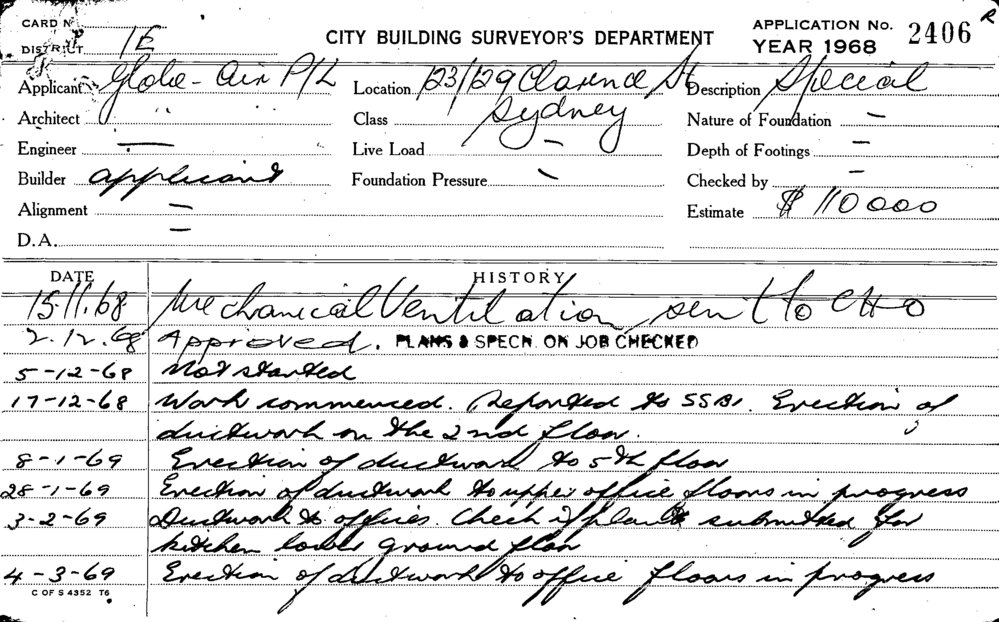 CARD No
DISTRICT 1E
CITY BUILDING SURVEYOR'S DEPARTMENT
APPLICATION No. 2406 R
YEAR 1968
Applicant Globe-Air P/L Location 123/129 Clarence St Description Special
Architect Class Sydney Nature of Foundation –
Engineer — Live Load – Depth of Footings –
Builder applicant Foundation Pressure – Checked by –
Alignment – Estimate $110000
D.A. –
DATE HISTORY
15.11.68 Mechanical Ventilation sent to CHO
2.12.68 Approved. PLANS & SPECN. ON JOB CHECKED
5-12-68 Not started
17-12-68 Work commenced. Reported to SSBI. Erection of
ductwork on the 2nd floor.
8-1-69 Erection of ductwork to 5th floor
28-1-69 Erection of ductwork to upper office floors in progress
3-2-69 Ductwork to offices. Check if plans submitted for
kitchen lower ground floor
4-3-69 Erection of ductwork to office floors in progress
C OF S 4352 T6